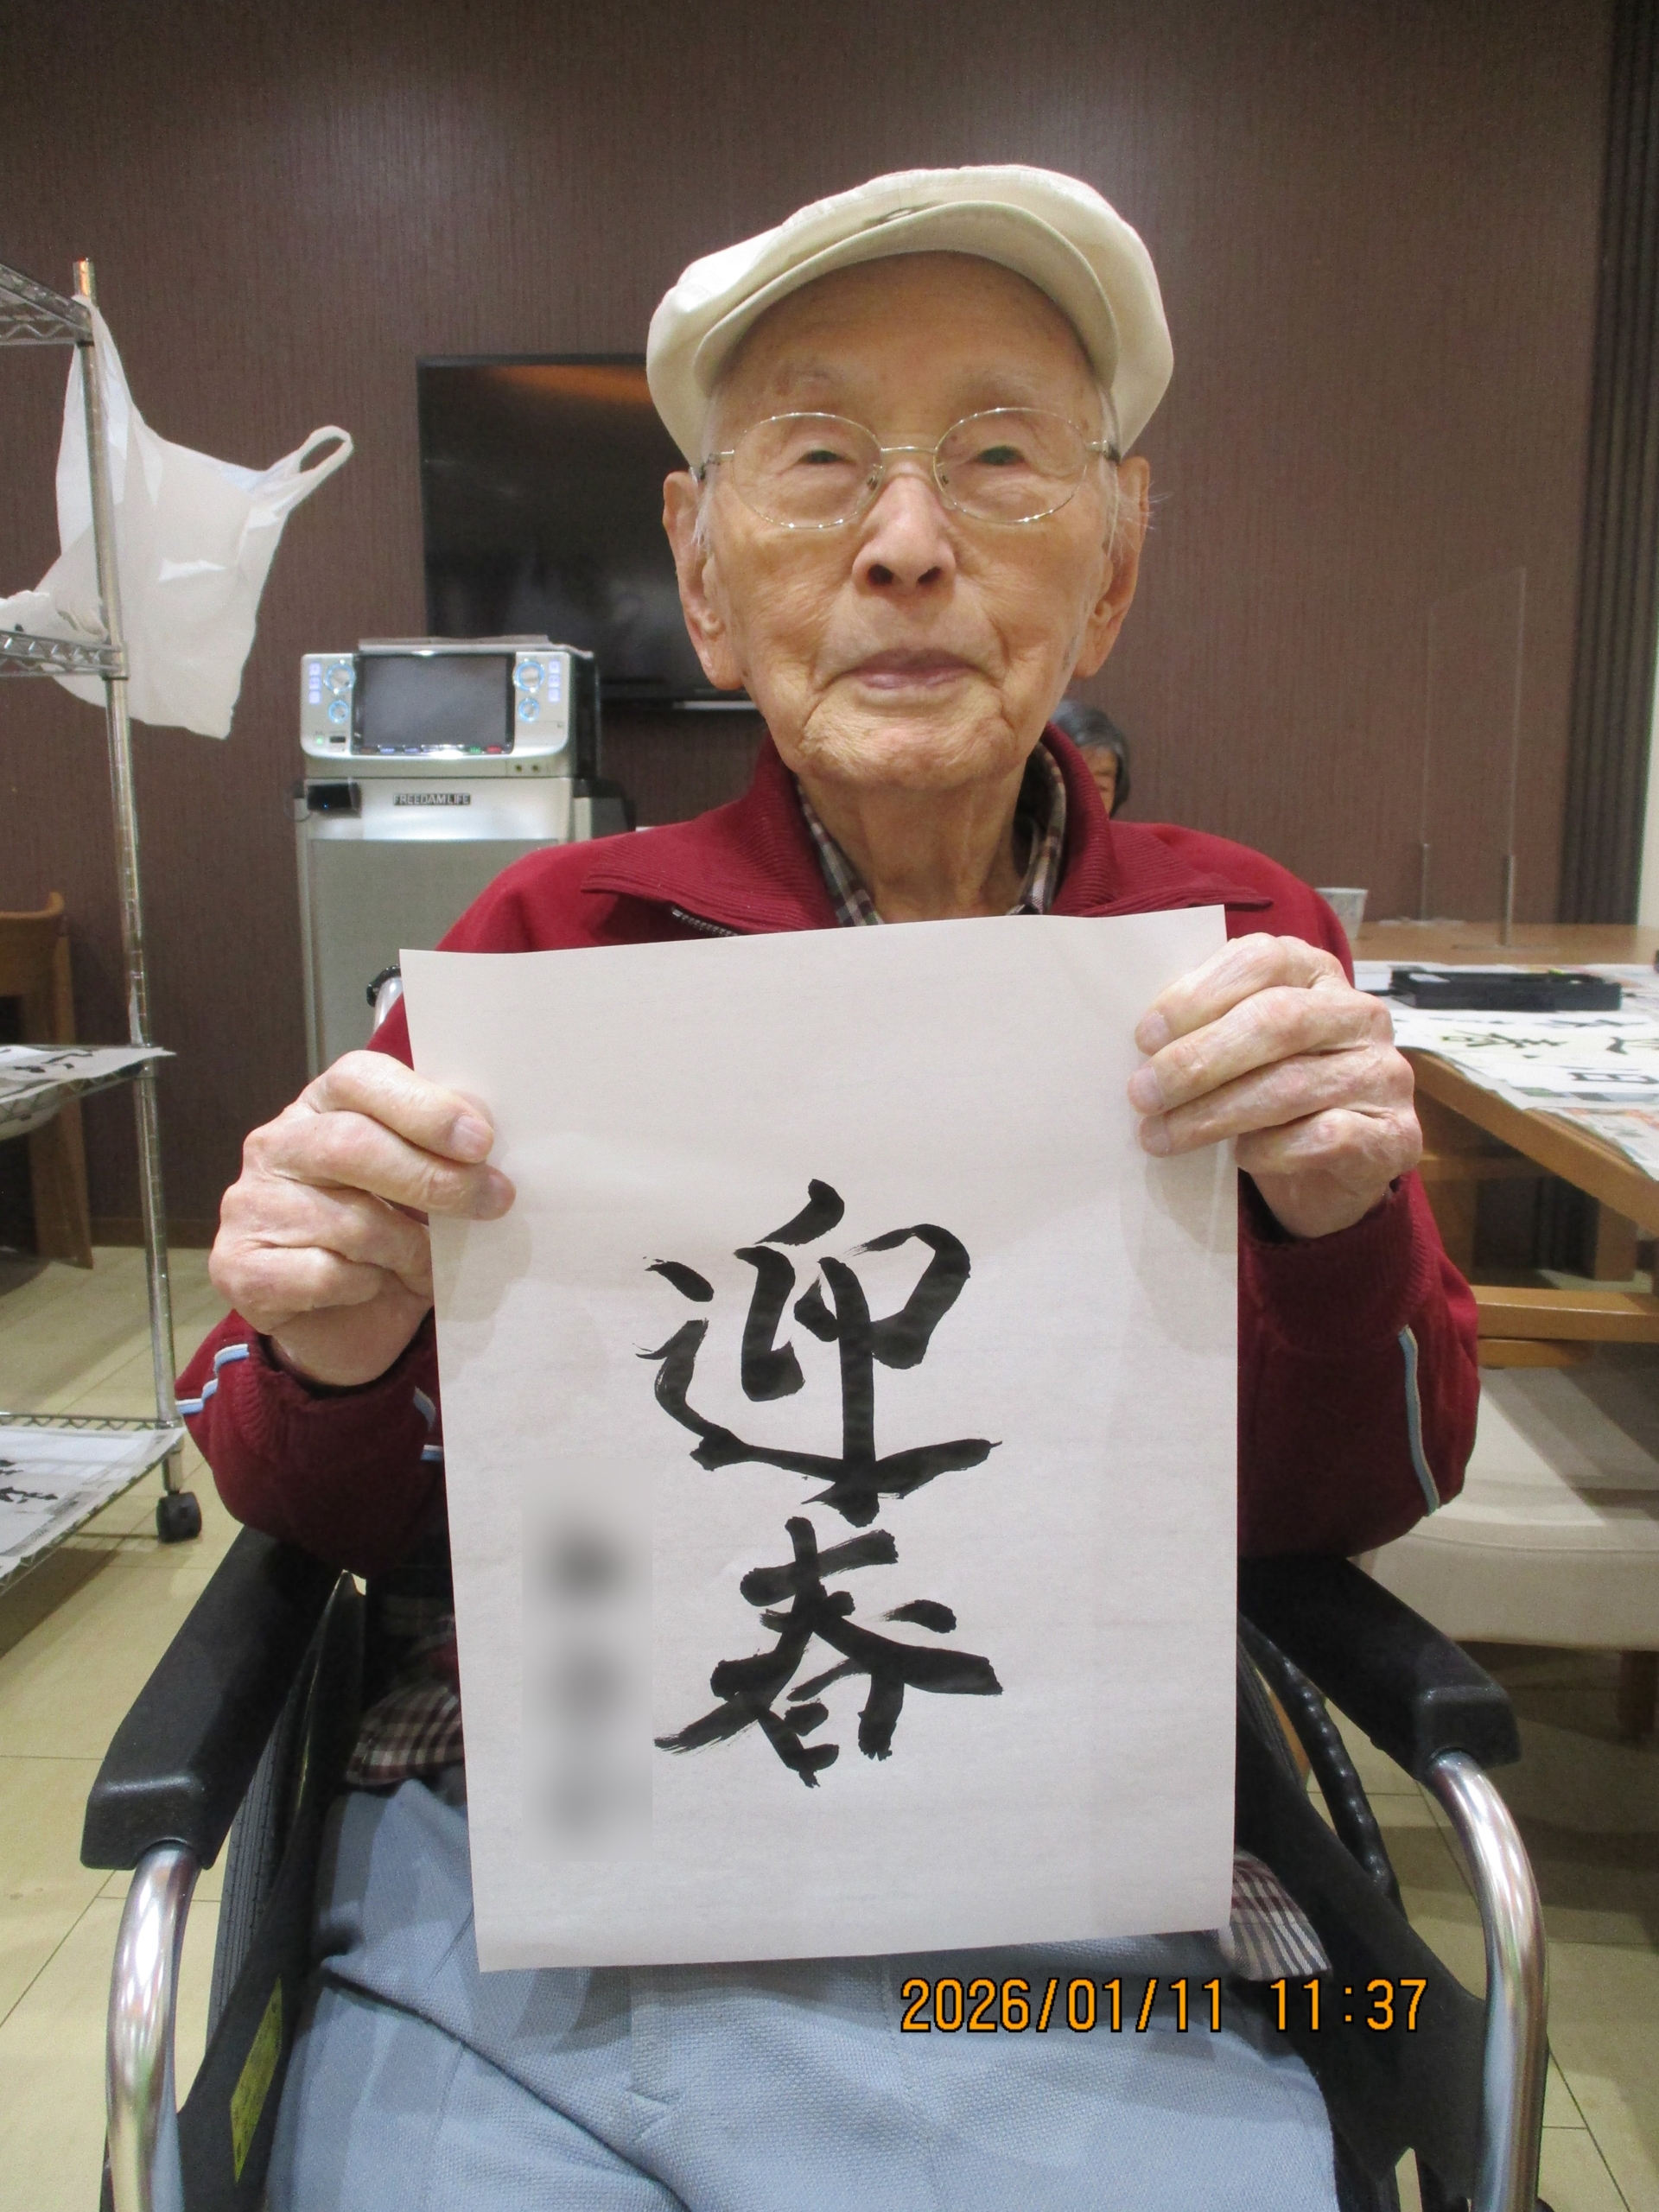 FREEDAM LIFE
迎春
2026/01/11 11:37